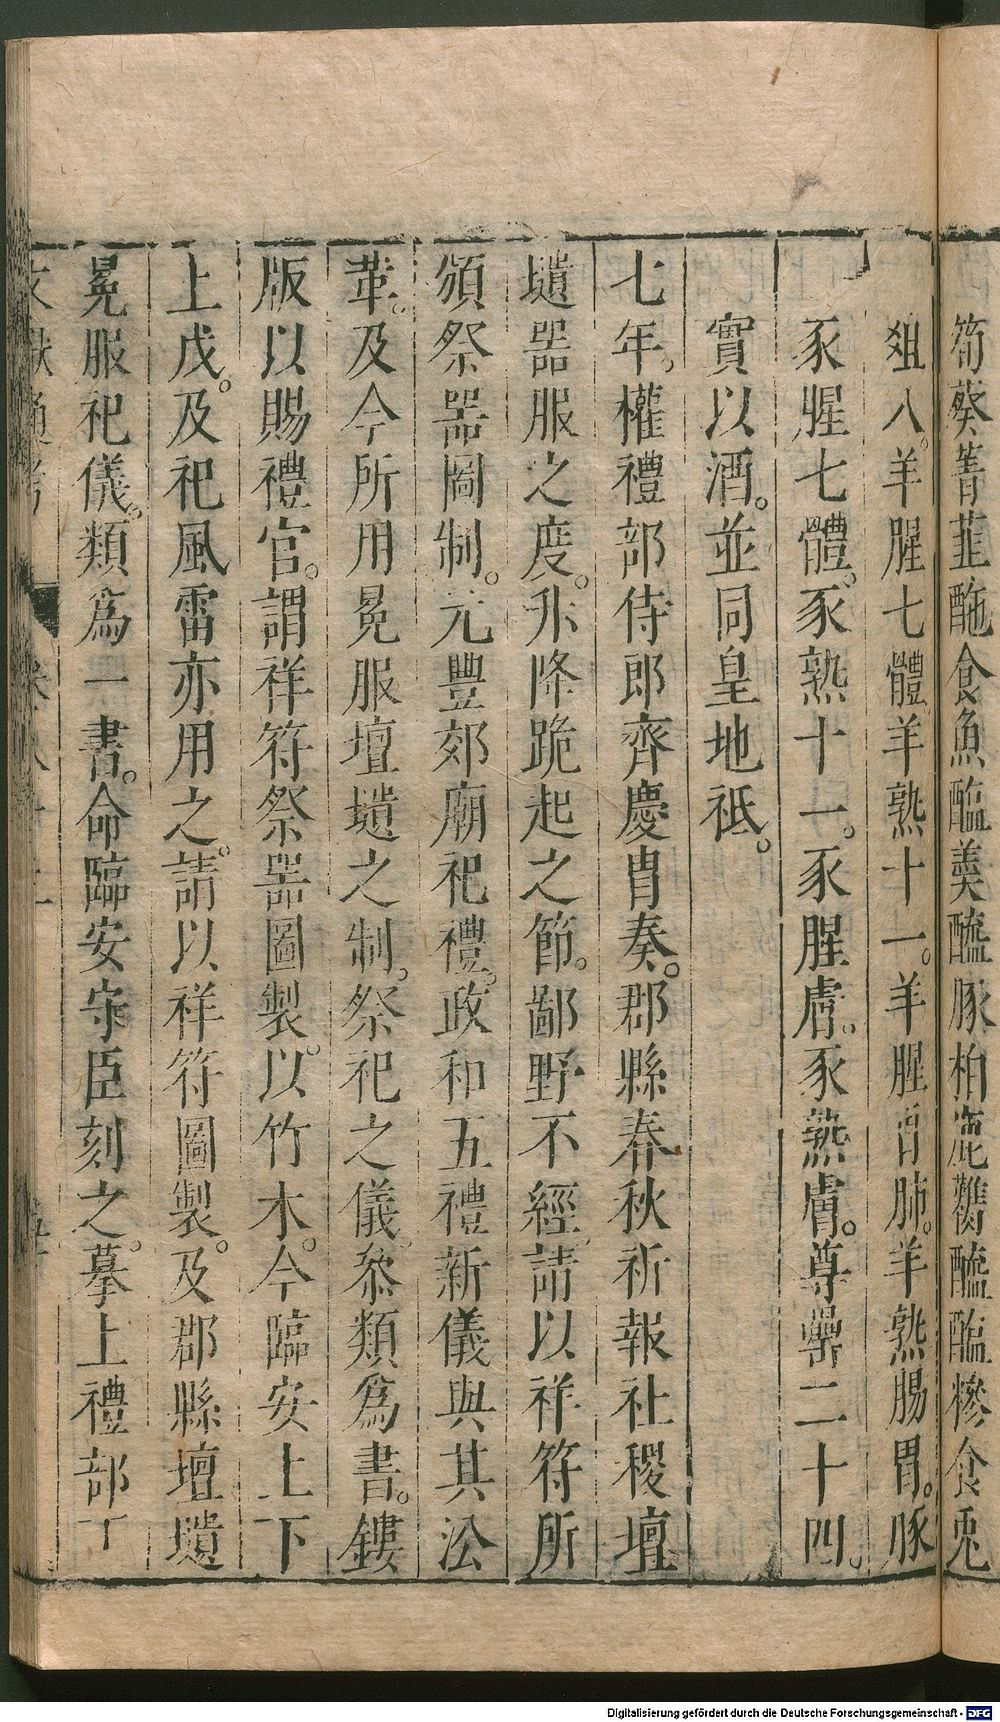 筍葵菁韮酏食魚醢羹醯豚柏麑臡醯醢糝食兎
俎八。羊腥七體羊熟十一。羊腥胃肺。羊熟腸胃。豚
豕腥七體。豕熟十一。豕腥膚。豕熟膚。尊罍二十四。
實以酒。並同皇地祇。
七年。權禮部侍郎齊慶胄奏。郡縣春秋祈報社稷壇
壝器服之度。升降跪起之節。鄙野不經請以祥符所
頒祭器圖制。元豐郊廟祀禮。政和五禮新儀與其沿
革。及今所用冕服壇壝之制。祭祀之儀。叅類爲書。鏤
版以賜禮官。謂祥符祭器圖製。以竹木。今臨安上下
上戊。及祀風雷亦用之。請以祥符圖製。及郡縣壇壝
冕服祀儀。類爲一書。命臨安守臣刻之。摹上禮部下
文獻通考 卷八十二
Digitalisierung gefördert durch die Deutsche Forschungsgemeinschaft - DFG